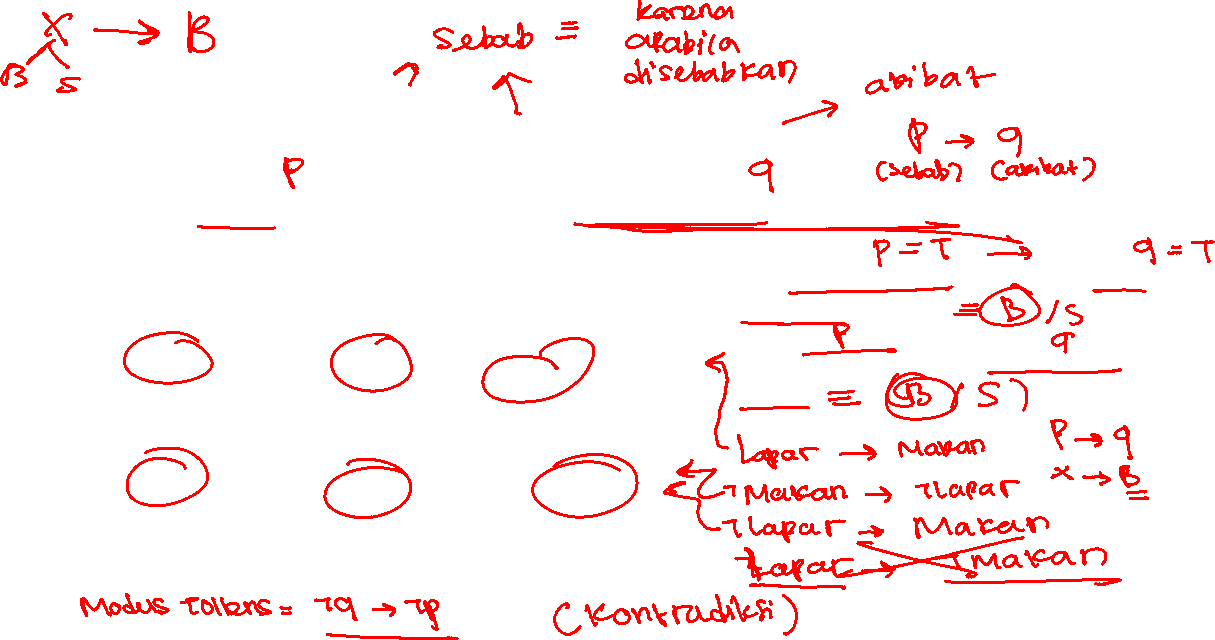 X → B
B S
sebab ≡ karena
apabila
disebabkan
akibat
P → q
(sebab) (akibat)
P q
P = T → q = T
≡ B / S
P q
≡ B / S )
Lapar → Makan
P → q
¬Makan → ¬Lapar
x → B
¬Lapar → Makan
Lapar → ¬Makan
Modus Tollens = ¬q → ¬p (Kontradiksi)